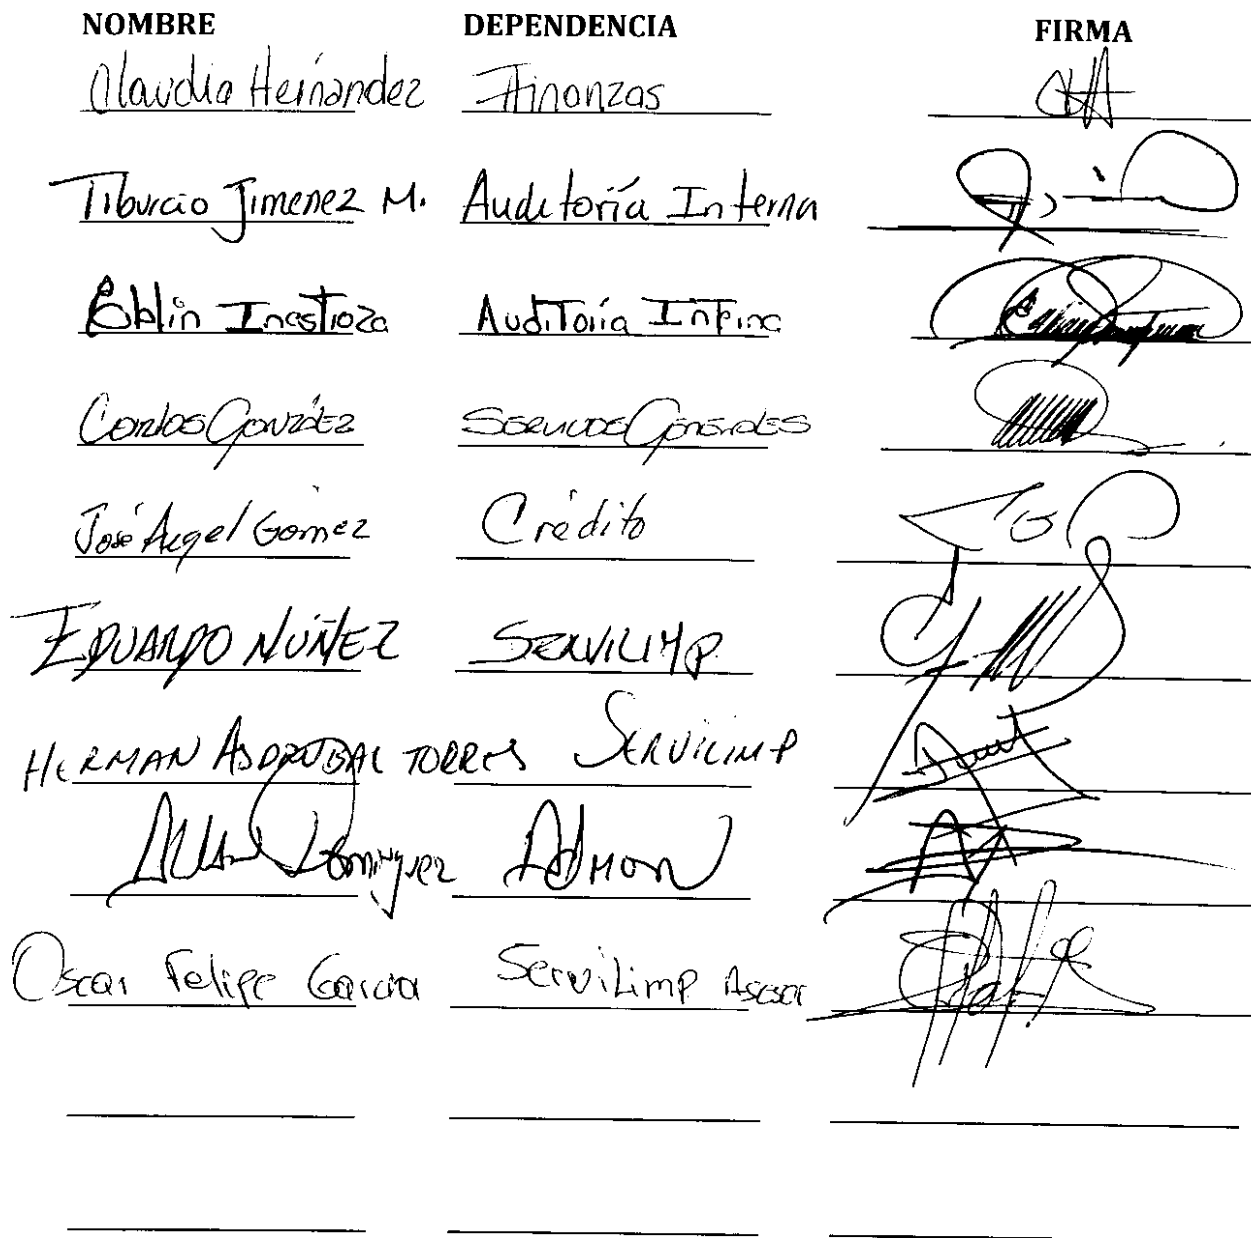 NOMBRE DEPENDENCIA FIRMA
Claudia Hernández Finanzas
Tiburcio Jimenez M. Auditoría Interna
Eblin Inestroza Auditoría Interna
Carlos González Servicios Generales
José Angel Gómez Crédito
EDUARDO NÚÑEZ SERVILIMP
HERMAN ASDRUBAL TORRES SERVILIMP
Dominguez Admon
Oscar Felipe Garcia ServiLimp Asesor